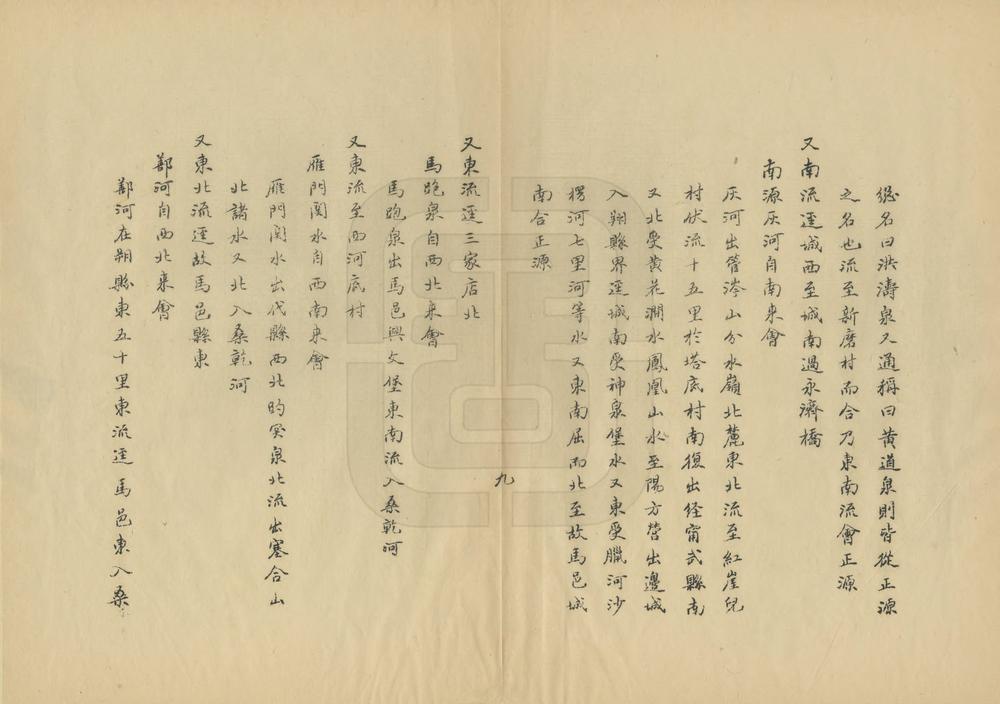 總名曰洪濤泉又通稱曰黄道泉則皆從正源
之名也流至新磨村而合乃東南流會正源
又南流逕城西至城南過永濟橋
南源灰河自南來會
灰河出管涔山分水嶺北麓東北流至紅崖兒
村伏流十五里於塔底村南復出经甯武縣南
又北受黄花澗水鳳凰山水至陽方营出邊城
入朔縣界逕城南受神泉堡水又東受臘河沙
楞河七里河等水又東南屈而北至故馬邑城
南合正源
九
又東流逕三家店北
馬跑泉自西北来會
馬跑泉出馬邑興文堡東南流入桑乾河
又東流至西河底村
雁門関水自西南來會
雁門関水出代縣西北旳䆒泉北流出塞合山
北諸水又北入桑乾河
又東北流逕故馬邑縣東
鄯河自西北来會
鄯河在朔縣東五十里東流逕馬邑東入桑